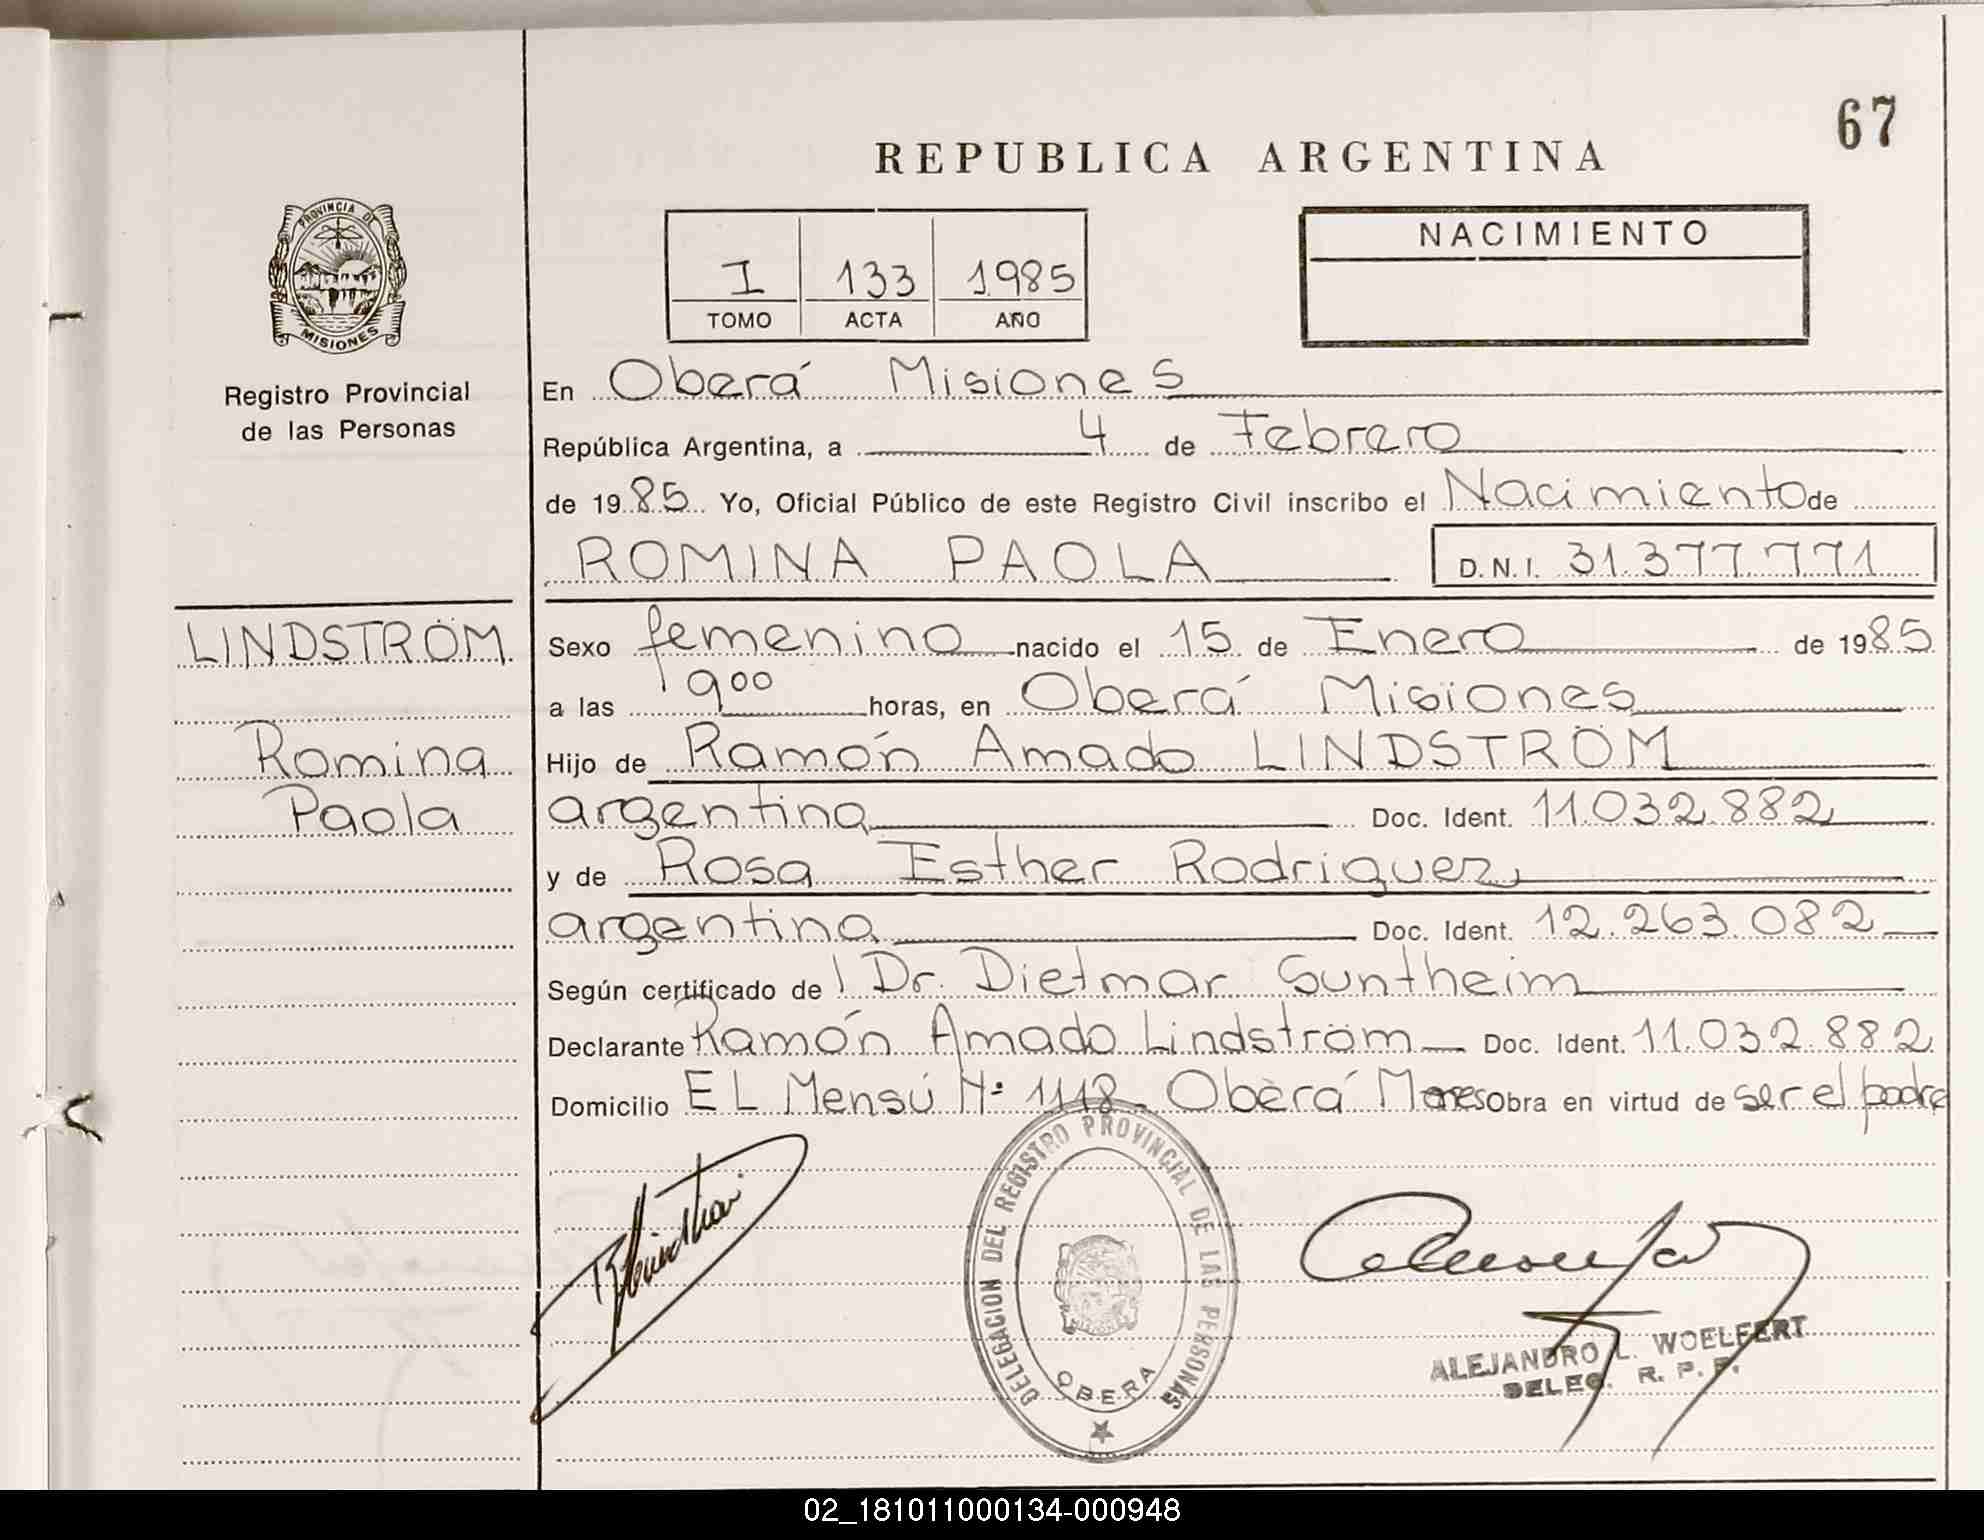 67
REPUBLICA ARGENTINA
PROVINCIA DE
MISIONES
Registro Provincial
de las Personas
I 133 1985
TOMO ACTA AÑO
NACIMIENTO
En Oberá Misiones
República Argentina, a 4 de Febrero
de 1985 Yo, Oficial Público de este Registro Civil inscribo el Nacimiento de
ROMINA PAOLA D.N.I. 31.377.771
LINDSTRÖM
Romina
Paola
Sexo femenino nacido el 15 de Enero de 1985
a las 9⁰⁰ horas, en Oberá Misiones
Hijo de Ramón Amado LINDSTRÖM
argentina Doc. Ident. 11.032.882
y de Rosa Esther Rodriguez
argentina Doc. Ident. 12.263.082
Según certificado de Dr. Dietmar Suntheim
Declarante Ramón Amado Lindström Doc. Ident. 11.032.882
Domicilio EL Mensú Nº 1118 Oberá Mones Obra en virtud de ser el padre
DELEGACION DEL REGISTRO PROVINCIAL DE LAS PERSONAS
MISIONES
OBERA
ALEJANDRO L. WOELFERT
DELEG. R. P. P.
02_181011000134-000948